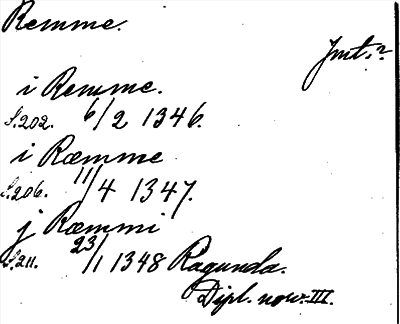 Remme.
Jmt.?
i Remme.
S.202. 6/2 1346.
i Ræmme
S.206. 11/4 1347.
j Ræmmi
S.211. 23/1 1348 Ragunda.
Dipl. norv. III.